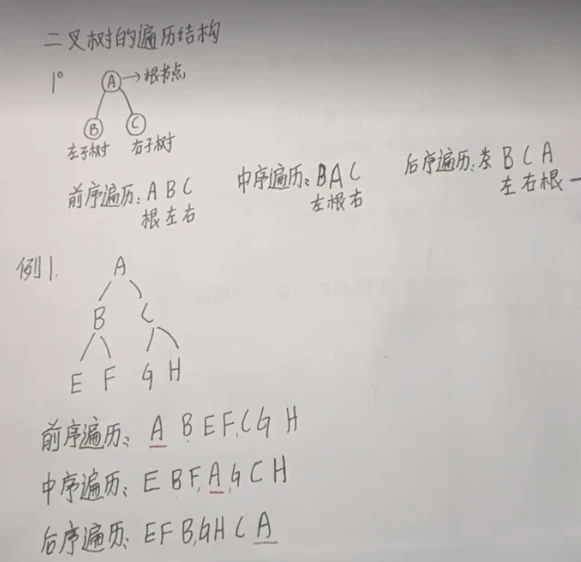 二叉树的遍历结构
1°
A → 根节点
B C
左子树 右子树
前序遍历: A B C
根 左 右
中序遍历: B A C
左 根 右
后序遍历: B C A
左 右 根
例1.
A
B C
E F G H
前序遍历: A B E F, C G H
中序遍历: E B F, A, G C H
后序遍历: E F B, G H C A